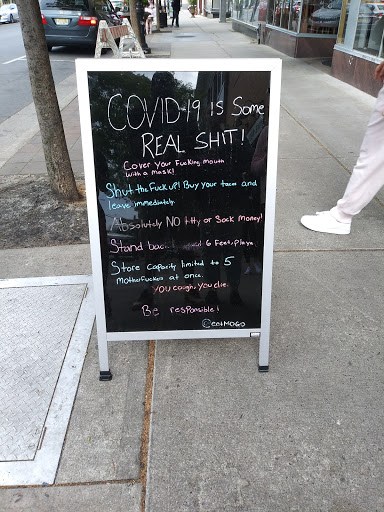 COVID-19 is Some
REAL SHIT!
Cover your Fucking mouth
with a mask!
Shut the Fuck up! Buy your tacos and
leave immediately.
Absolutely NO titty or Sock Money!
Stand back 6 Feet, Playa.
Store Capacity limited to 5
motherfuckers at once.
You cough, you die.
Be responsible!
@eatMOGO